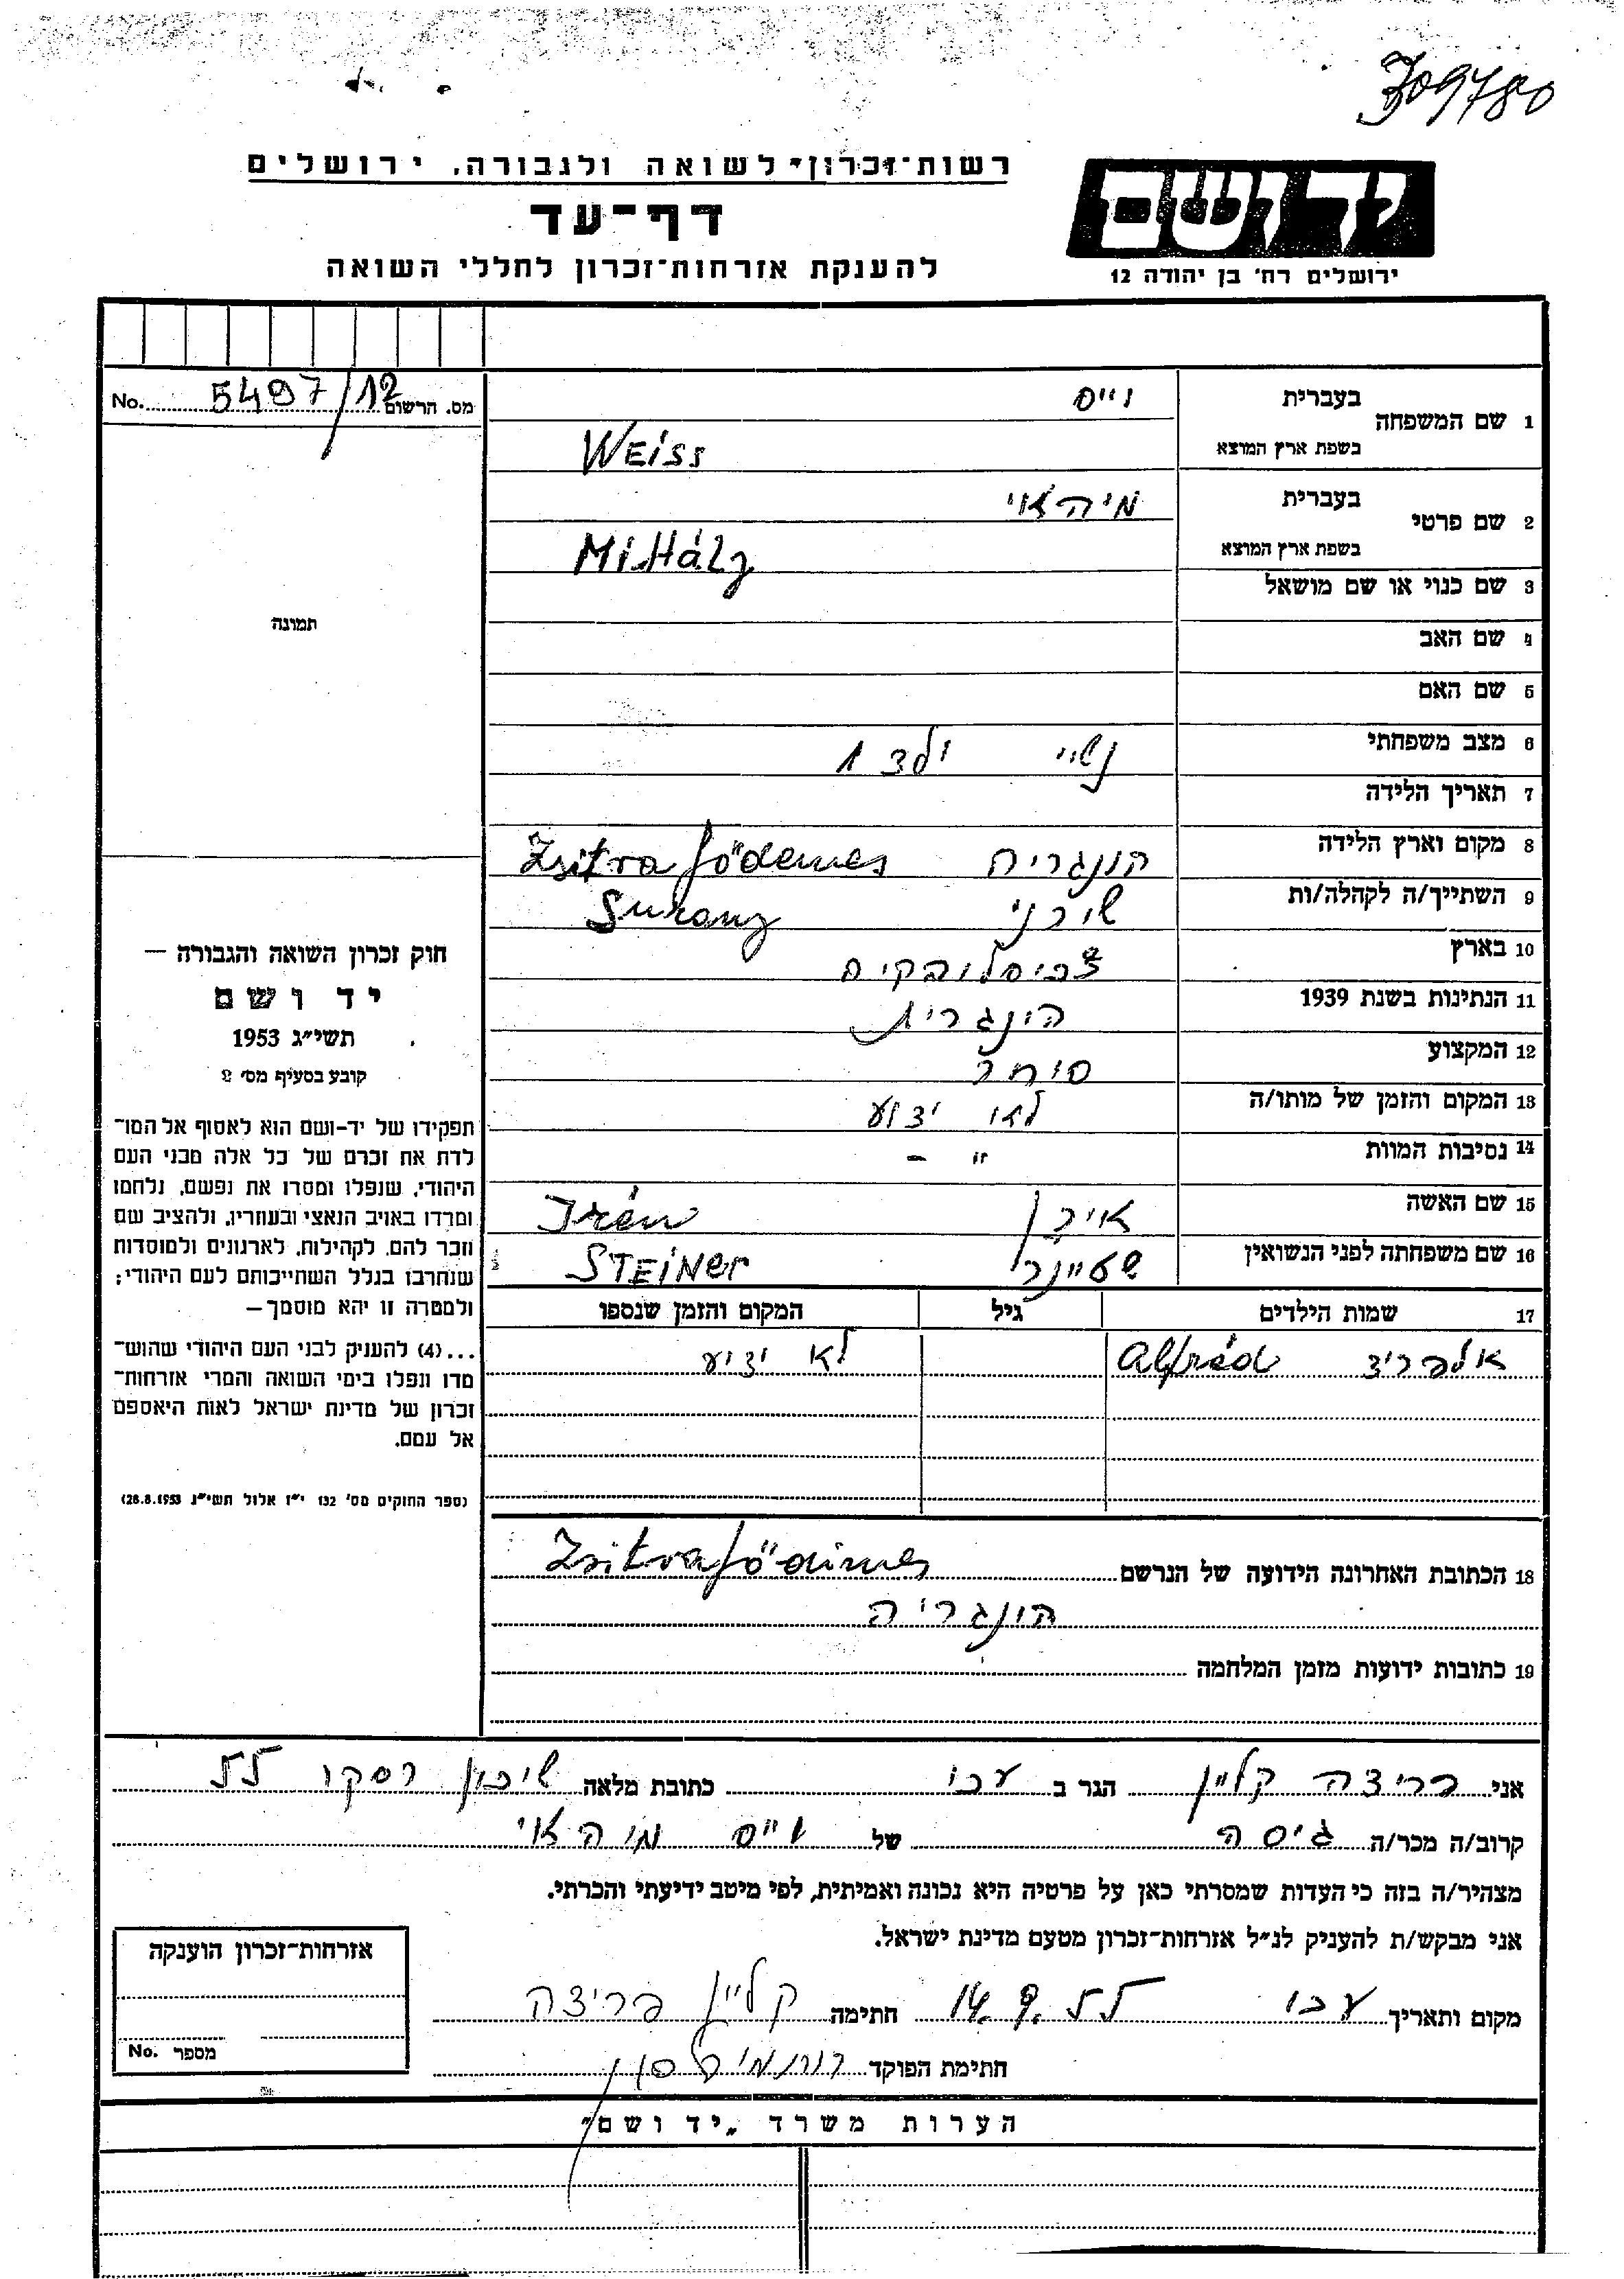 309780
רשות־זכרון לשואה ולגבורה, ירושלים
יד ושם
דף־עד
להענקת אזרחות־זכרון לחללי השואה
ירושלים רח׳ בן יהודה 12
No. 5497/12 מס. הרשום
1 שם המשפחה בעברית וייס
בשפת ארץ המוצא WEiSS
2 שם פרטי בעברית מיהאי
בשפת ארץ המוצא MiHály
3 שם כנוי או שם מושאל
4 שם האב
5 שם האם
6 מצב משפחתי נשוי ילד 1
7 תאריך הלידה
8 מקום וארץ הלידה הונגריה Zsitra födemes
9 השתייך/ה לקהלה/ות שורני Surany
10 בארץ
11 הנתינות בשנת 1939 הונגרית
12 המקצוע סוחר
13 המקום והזמן של מותו/ה לא ידוע
14 נסיבות המוות - "
15 שם האשה אירן Irén
16 שם משפחתה לפני הנשואין שטיינר STEiNer
17 שמות הילדים גיל המקום והזמן שנספו
אלפריד Alfréd לא ידוע
18 הכתובת האחרונה הידועה של הנרשם Zsitrafödémes
הונגריה
19 כתובות ידועות מזמן המלחמה
תמונה
חוק זכרון השואה והגבורה —
יד ושם
תשי״ג 1953
קובע בסעיף מס׳ 2
תפקידו של יד-ושם הוא לאסוף אל המו־
לדת את זכרם של כל אלה מבני העם
היהודי, שנפלו ומסרו את נפשם, נלחמו
ומרדו באויב הנאצי ובעוזריו, ולהציב שם
וזכר להם, לקהילות, לארגונים ולמוסדות
שנחרבו בגלל השתייכותם לעם היהודי;
ולמטרה זו יהא מוסמך—
...(4) להעניק לבני העם היהודי שהוש־
מדו ונפלו בימי השואה והמרי אזרחות־
זכרון של מדינת ישראל לאות היאספם
אל עמם.
(ספר החוקים מס׳ 132 י״ז אלול תשי״ג 28.8.1953)
אני פריצה קליין הגר ב עכו כתובת מלאה שיכון רסקו 55
קרוב/ה מכר/ה גיסה של וייס מיהאי
מצהיר/ה בזה כי העדות שמסרתי כאן על פרטיה היא נכונה ואמיתית, לפי מיטב ידיעתי והכרתי.
אני מבקש/ת להעניק לנ״ל אזרחות־זכרון מטעם מדינת ישראל.
מקום ותאריך עכו 14. 9. 55 חתימה קליין פריצה
חתימת הפוקד
אזרחות־זכרון הוענקה
מספר No.
הערות משרד „יד ושם"